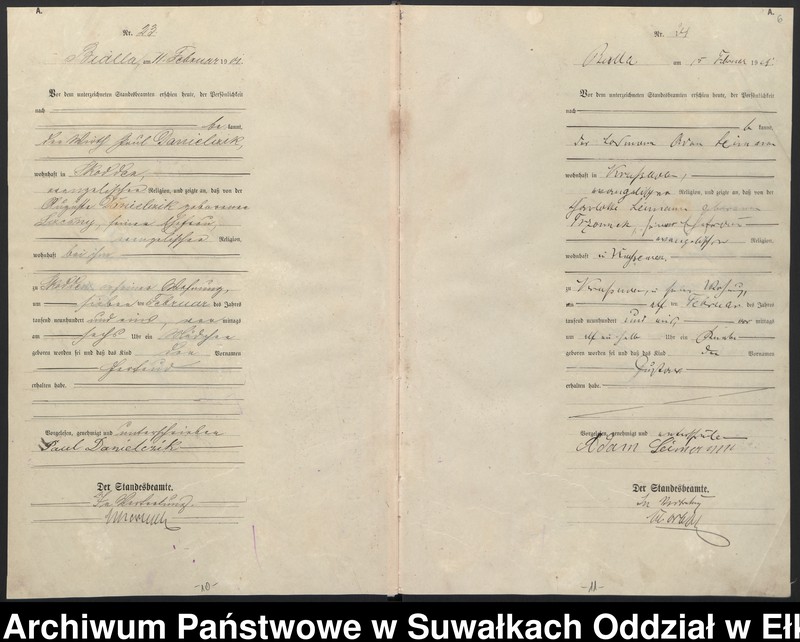 A.
Nr. 23.
Bialla, am 11. Februar 1901.
Vor dem unterzeichneten Standesbeamten erschien heute, der Persönlichkeit
nach
be kannt,
der Wirth Paul Danielzik,
wohnhaft in Skodden,
evangelischer Religion, und zeigte an, daß von der
Auguste Danielzik geborenen
seiner Ehefrau,
evangelischer Religion,
wohnhaft bei ihm
zu Skodden in seiner Wohnung,
am sieben ten Februar des Jahres
tausend neunhundert und eins, mittags
um sechs Uhr ein Mädchen
geboren worden sei und daß das Kind den Vornamen
Gertrud
erhalten habe.
Vorgelesen, genehmigt und unterschrieben
Paul Danielzik
Der Standesbeamte.
In Vertretung.
-10-
A.
6
Nr. 24
Bialla am 15 Februar 1901
Vor dem unterzeichneten Standesbeamten erschien heute, der Persönlichkeit
nach
be kannt,
der Losmann Adam Leimann
wohnhaft in
evangelischer Religion, und zeigte an, daß von der
Charlotte Leimann geborenen
seiner Ehefrau
evangelischer Religion,
wohnhaft in
zu in seiner Wohnung,
am elf ten Februar des Jahres
tausend neunhundert und eins, vor mittags
um elf ein halb Uhr ein Knabe
geboren worden sei und daß das Kind den Vornamen
Gustav
erhalten habe.
Vorgelesen, genehmigt und unterschrieben
Adam Leimann
Der Standesbeamte.
In Vertretung
-11-
Archiwum Państwowe w Suwałkach Oddział w Eł